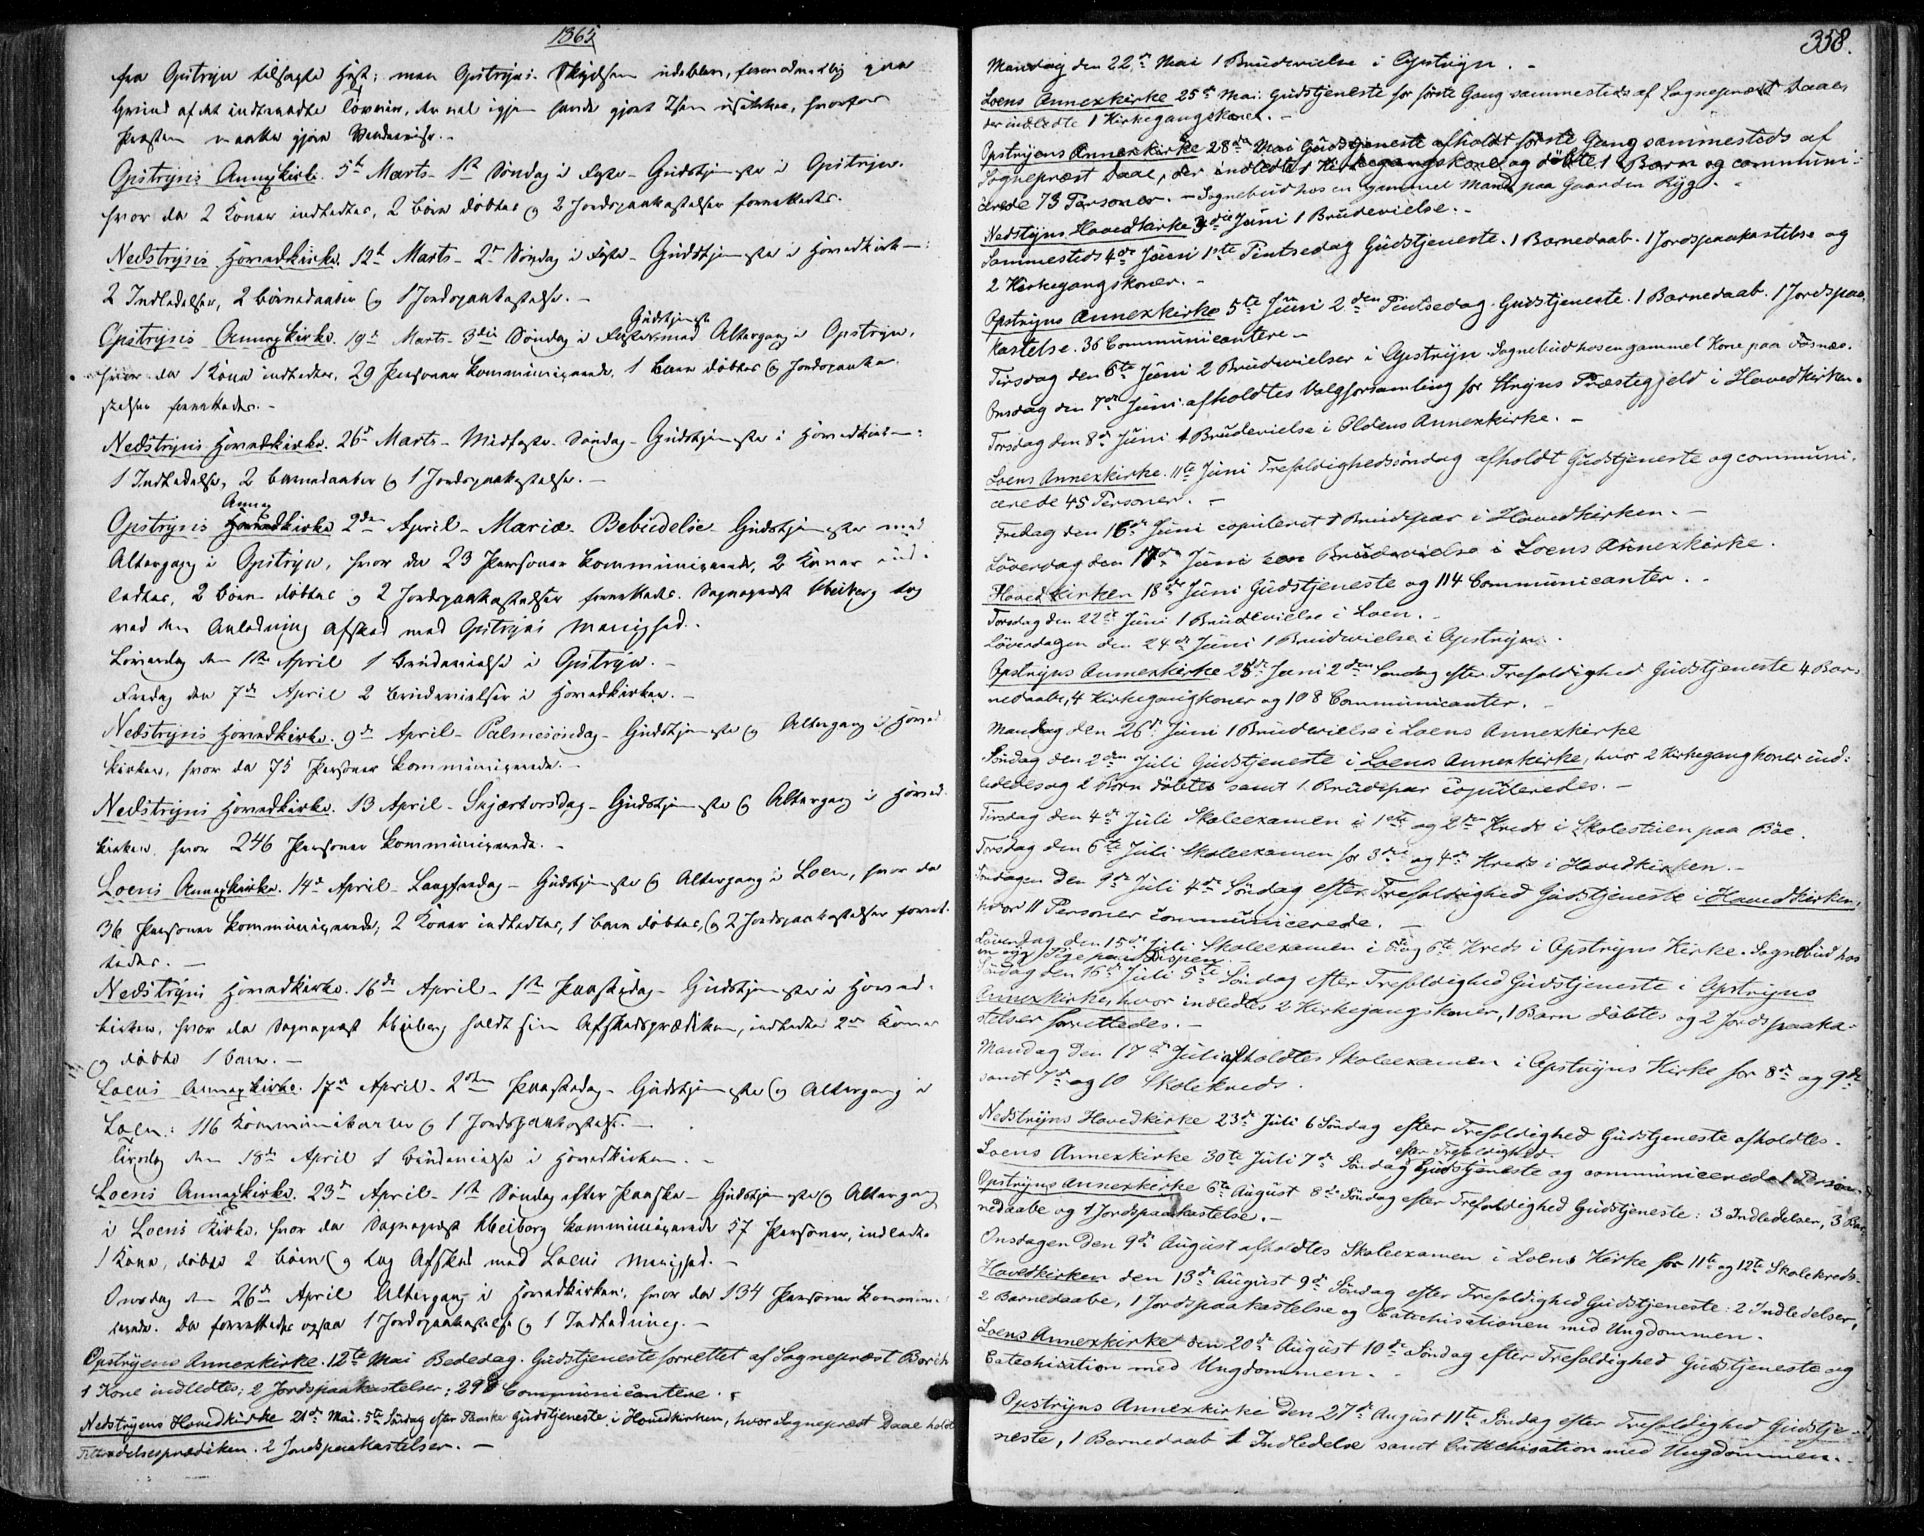 1865
fra Opstryn tilsagte Hest; men Opstryns Skydsen udeblev, formodentlig paa
Grund af det indtraadte Tøveir, der vel igjen havde gjort Isen usikker, hvorfor
Præsten maatte gjøre Vendereise.-
Opstryns Annexkirke. 5te Marts - 1ste Søndag i Faste - Gudstjeneste i Opstryn,
hvor der 2 Koner indledtes, 2 Børn døbtes og 2 Jordspaakastelser forrettedes.
Nedstryns Hovedkirke. 12te Marts - 2den Søndag i Faste - Gudstjeneste i Hovedkirken:
2 Indledelser, 2 Barnedaaber og 1 Jordspaakastelse. -
Opstryns Annexkirke. 19de Marts - 3die Søndag i Faste Gudstjeneste med Altergang i Opstryn,
hvor der 1 Kone indledtes, 29 Personer kommunicerede, 1 Barn døbtes og Jordspaaka-
stelse forrettedes. -
Nedstryns Hovedkirke. 26de Marts - Midfaste Søndag - Gudstjeneste i Hovedkirken:
1 Indledelse, 2 Barnedaaber og 1 Jordspaakastelse. -
Opstryns Annexkirke 2den April - Mariæ Bebudelse Gudstjeneste med
Altergang i Opstryn, hvor der 23 Personer kommunicerede, 2 Koner ind-
ledtes, 2 Børn døbtes og 2 Jordspaakastelser forrettedes. Sognepræst Meiberg tog
ved den Anledning Afsked med Opstryns Menighed.
Løverdag den 1ste April 1 Brudevielse i Opstryn. -
Fredag den 7de April 2 Brudevielser i Hovedkirken. -
Nedstryns Hovedkirke. 9de April - Palmesøndag - Gudstjeneste og Altergang i Hoved-
kirken, hvor der 75 Personer kommunicerede. -
Nedstryns Hovedkirke. 13 April - Skjærtorsdag - Gudstjeneste og Altergang i Hoved-
kirken, hvor 246 Personer kommunicerede. -
Loens Annexkirke. 14de April - Langfredag - Gudstjeneste og Altergang i Loen, hvor der
36 Personer kommunicerede, 2 Koner indledtes, 1 Barn døbtes, og 2 Jordspaakastelser forret-
tedes. -
Nedstryns Hovedkirke. 16de April - 1ste Paaskedag - Gudstjeneste i Hoved-
kirken, hvor der Sognepræst Meiberg holdt sin Afskedsprædiken, indledte 2de Koner
og døbte 1 Barn. -
Loens Annexkirke. 17de April - 2den Paaskedag - Gudstjeneste og Altergang i
Loen: 116 Kommunikanter og 1 Jordspaakastelse. -
Tirsdag den 18de April 1 Brudevielse i Hovedkirken. -
Loens Annexkirke. 23de April - 1ste Søndag efter Paaske - Gudstjeneste og Altergang
i Loens Kirke, hvor der Sognepræst Meiberg kommunicerede 57 Personer, indledte
1 Kone, døbte 2 Børn og tog Afsked med Loens Menighed. -
Onsdag den 26de April Altergang i Hovedkirken, hvor der 134 Personer kommuni-
cerede. Der forrettedes ogsaa 1 Jordspaakastelse og 1 Indledning. -
Opstryens Annexkirke. 12te Mai Bededag. Gudstjeneste forrettet af Sognepræst
1 Kone indledtes; 2 Jordspaakastelser; 29 Communicantere.
Nedstryens Hovedkirke 21de Mai. 5te Søndag efter Paaske Gudstjeneste i Hovedkirken, hvor Sognepræst Daae holdt
Tiltrædelsesprædiken. 2 Jordspaakastelser. -
358.
Mandag den 22de Mai 1 Brudevielse i Opstryn. -
Loens Annexkirke 25de Mai: Gudstjeneste for første Gang sammesteds af Sognepræst Daae,
der indledte 1 Kirkegangskone. -
Opstryens Annexkirke 28de Mai Gudstjeneste afholdt første Gang sammesteds af
Sognepræst Daae, der indledte 1 Kirkegangskone og døbte 1 Barn og communi-
cerede 73 Personer. - Sognebud hos en gammel Mand paa Gaarden Ryg.
Nedstryns Hovedkirke 3die Juni 1 Brudevielse. -
Sammesteds 4de Juni 1ste Pintsedag Gudstjeneste. 1 Barnedaab. 1 Jordspaakastelse og
2 Kirkegangskoner. -
Opstryns Annexkirke 5te Juni 2den Pintsedag. Gudstjeneste. 1 Barnedaab. 1 Jordspaa-
kastelse. 36 Communicantere -
Tirsdag den 6te Juni 2 Brudevielser i Opstryn. Sognebud hos en gammel Kone paa
Onsdag den 7de Juni afholdtes Valgforsamling for Stryns Præstegjeld i Hovedkirken.
Torsdag den 8de Juni 1 Brudevielse i Oldens Annexkirke. -
Loens Annexkirke. 11te Juni Trefoldighedsøndag afholdt Gudstjeneste og communi-
cerede 45 Personer. -
Fredag den 16de Juni copuleret 1 Brudepar i Hovedkirken. -
Løverdag den 17de Juni een Brudevielse i Loens Annexkirke.
Hovedkirken 18de Juni Gudstjeneste og 114 Communicanter. -
Torsdag den 22de Juni 1 Brudevielse i Loen. -
Løverdagen den 24de Juni 1 Brudevielse i Opstryn.
Opstryns Annexkirke 25de Juni 2den Søndag efter Trefoldighed Gudstjeneste 4 Bar-
nedaabe, 4 Kirkegangkoner og 108 Communicanter. -
Mandag den 26de Juni 1 Brudevielse i Loens Annexkirke
Søndag den 2den Juli Gudstjeneste i Loens Annexkirke, hvor 2 Kirkegangkoner ind-
lededes og 2 Børn døbtes samt 1 Brudepar copuleredes. -
Tirsdag den 4de Juli Skoleexamen i 1ste og 2den Kreds i Skolestuen paa Bøe.
Torsdag den 6te Juli Skoleexamen for 3die og 4de Kreds i Hovedkirken. -
Søndagen den 9de Juli 4de Søndag efter Trefoldighed Gudstjeneste i Hovedkirken,
hvor 11 Personer communicerede. -
Løverdag den 15de Juli Skoleexamen i 5te og 6te Kreds i Opstryns Kirke. Sognebud hos
en syg Pige paa
Søndag den 16de Juli 5te Søndag efter Trefoldighed Gudstjeneste i Opstryns
Annexkirke, hvor indledtes 2 Kirkegangskoner, 1 Barn døbtes og 2 Jordspaaka-
stelser forrettedes. -
Mandag den 17de Juli afholdtes Skoleexamen i Opstryns Kirke for 8de og 9de
samt 7de og 10 Skolekreds.
Nedstryns Hovedkirke 23de Juli 6 Søndag efter Trefoldighed Gudstjeneste afholdtes. -
Loens Annexkirke 30te Juli 7de Søndag efter Trefoldighed Gudstjeneste og communicerede 1 Person.
Opstryns Annexkirke 6te August 8de Søndag efter Trefoldighed Gudstjeneste: 3 Indledelser, 3 Bar-
nedaabe og 1 Jordspaakastelse. -
Onsdagen den 9de August afholdtes Skoleexamen i Loens Kirke for 11te og 12te Skolekreds.
Hovedkirken den 13de August 9de Søndag efter Trefoldighed Gudstjeneste: 2 Indledelser,
2 Barnedaabe, 1 Jordspaakastelse og Catechisationen med Ungdommen. -
Loens Annexkirke den 20de August 10de Søndag efter Trefoldighed Gudstjeneste og
Catechisation med Ungdommen. -
Opstryns Annexkirke den 27de August 11te Søndag efter Trefoldighed Gudstje-
neste, 1 Barnedaab 1 Indledelse samt Catechisation med Ungdommen. -